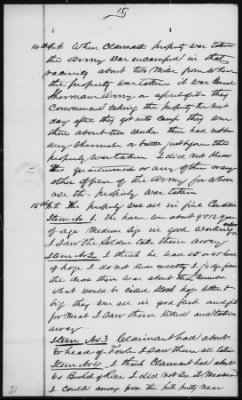 15
14th Int. When Claimants property was taken
the Army was encamped in that
vacinity about two miles from where
the property was taken it was Genl
Shermans Army or a part of it they
Commenced taking the property the next
day after they got into Camp they were
there about two weeks there had not been
any Skirmish or battle just before the
property was taken I did not know
the quartermaster or any other
officer of the Army for whose
use the property was taken
15th Int. The property was all in fine Condition
Item No 1. the horse was about 9 or 10 years
of age Medium Size in good working order
I saw the Soldier take them away
Item No 2 I think he had 25 or 30 head
of hogs I do not know exactly I judge from
the there was about that number
what would be Called Stock hogs little &
big they were all in good flesh and fit
for Meat I saw them killed and taken
away
Item No 3 Claimant had about
head of Fowls I saw them all taken
Item No 4 I think Claimant had about
Bushels of Rice I did not See it Measured
I could from the
21